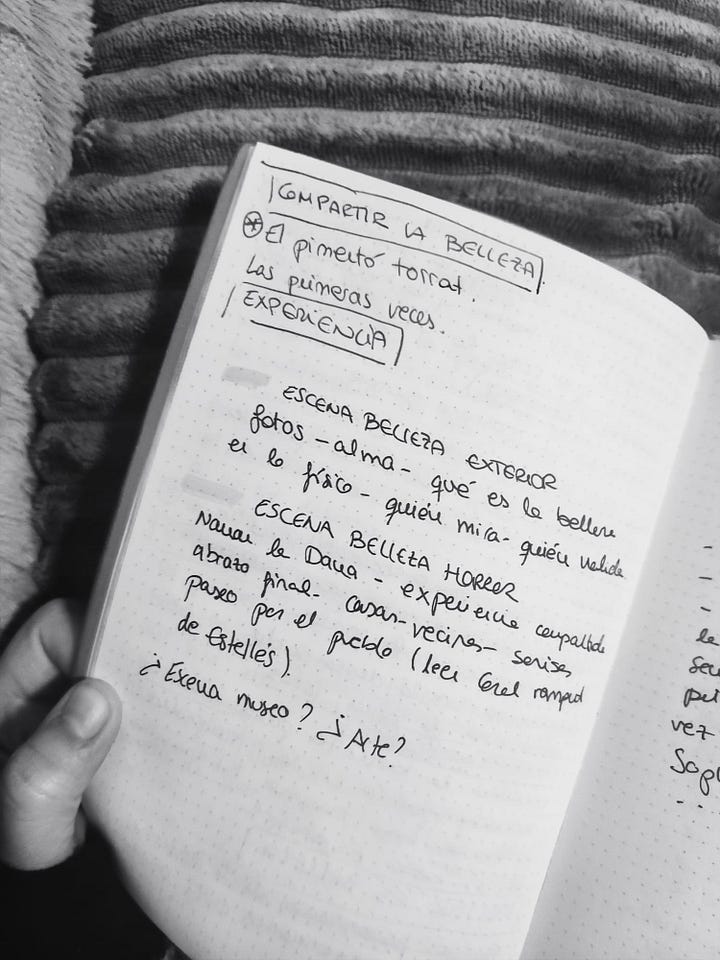 COMPARTIR LA BELLEZA
El pimentó torrat.
Las primeras veces.
EXPERIENCIA
ESCENA BELLEZA EXTERIOR
fotos - alma - qué es la belleza
en lo físico - quién mira - quién valida
ESCENA BELLEZA HORROR
Narrar la Dana - experiencia compartida
abrazo final - casas - vecinas -
paseo por el pueblo (leer Coral romput
de Estellés).
¿Escena museo? ¿Arte?
le
seu
vez